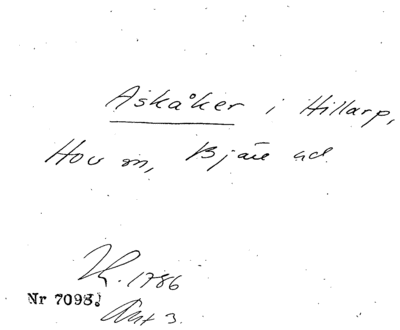 Askåker i Hillarp,
Hov sn, Bjäre hd
1786
Nr 7098.
Akt 3.